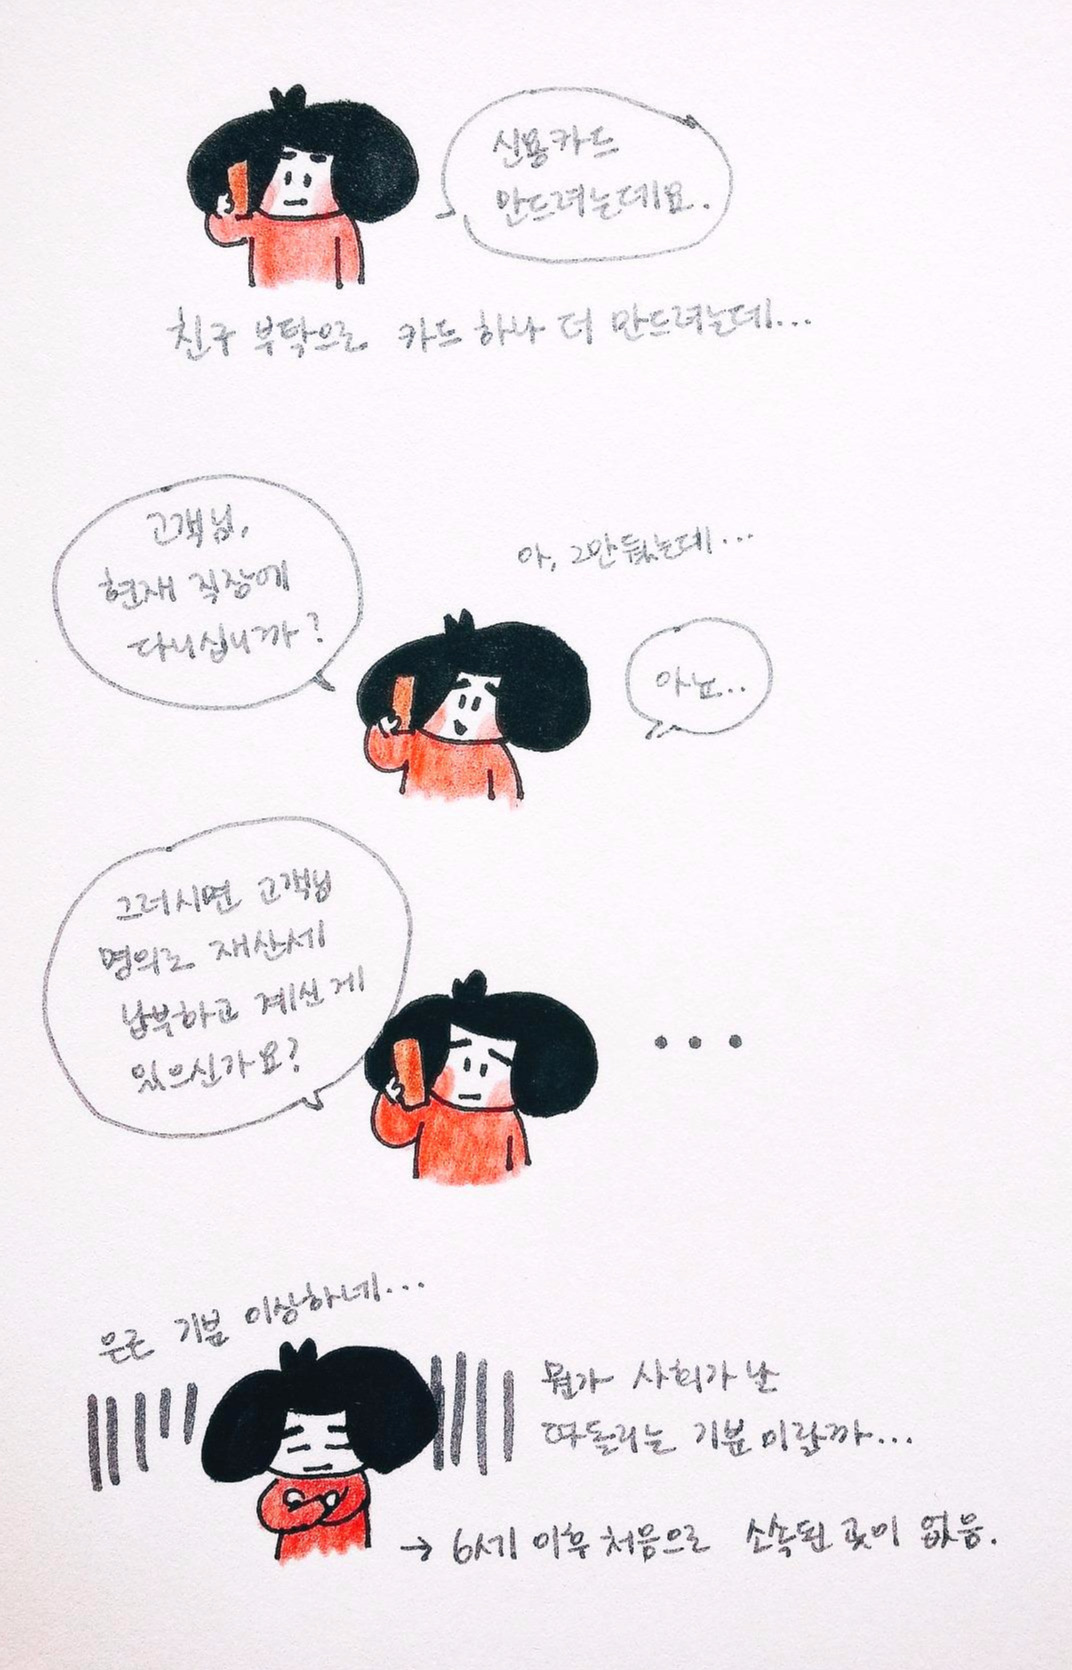 신용카드
만드려는데요.
친구 부탁으로 카드 하나 더 만드려는데...
고객님,
현재 직장에
다니십니까?
아, 그만뒀는데...
아뇨..
그러시면 고객님
명의로 재산세
납부하고 계신 게
있으신가요?
...
은근 기분 이상하네...
뭔가 사회가 날
따돌리는 기분이랄까...
→ 6세 이후 처음으로 소속된 곳이 없음.